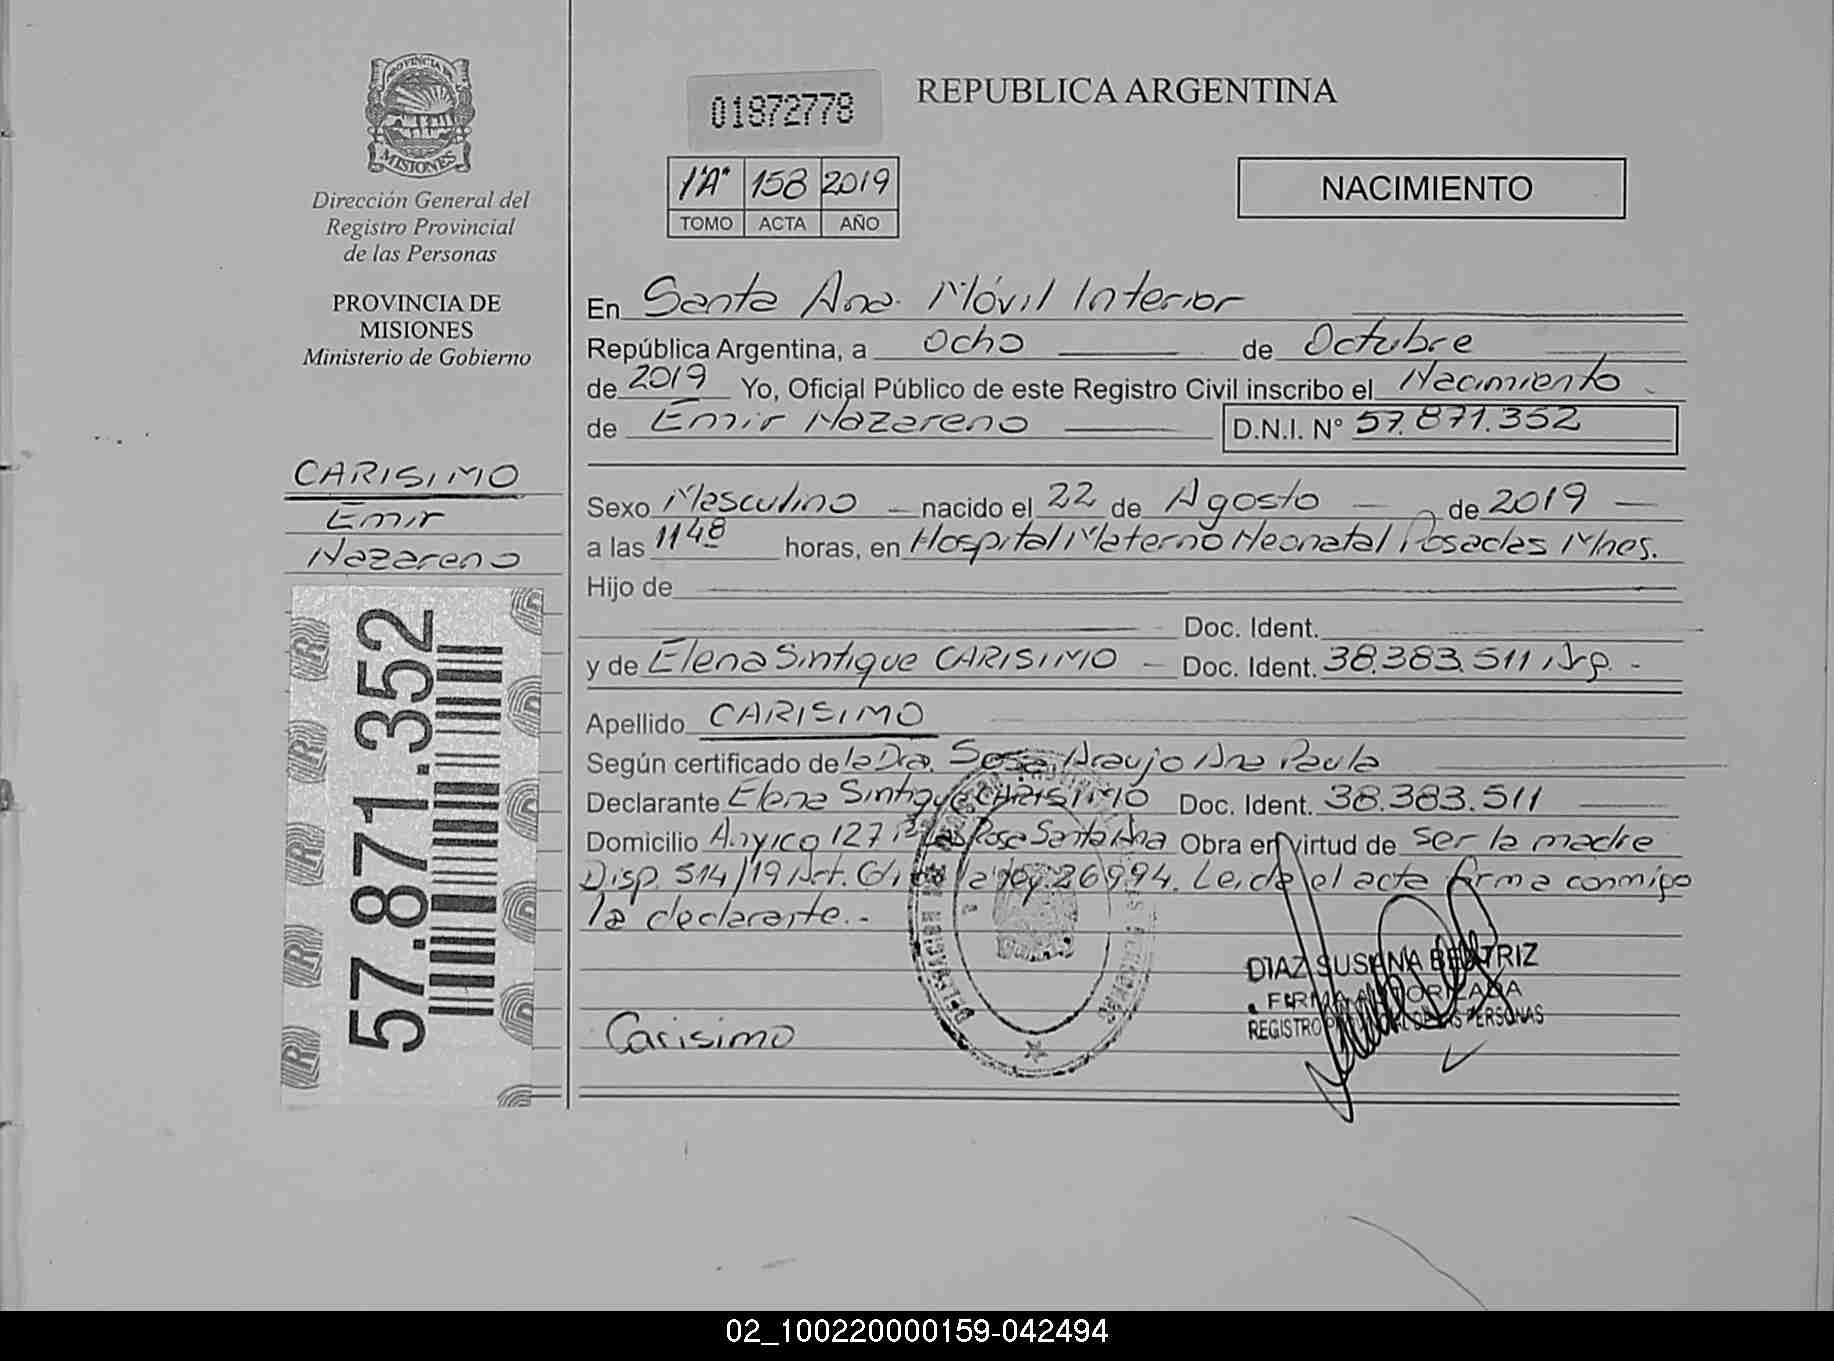 PROVINCIA DE
MISIONES
Dirección General del
Registro Provincial
de las Personas
PROVINCIA DE
MISIONES
Ministerio de Gobierno
CARISIMO
Emir
Nazareno
57.871.352
01872778
REPUBLICA ARGENTINA
1"A" 158 2019
TOMO ACTA AÑO
NACIMIENTO
En Santa Ana Móvil Interior
República Argentina, a ocho de Octubre
de 2019 Yo, Oficial Público de este Registro Civil inscribo el Nacimiento
de Emir Nazareno D.N.I. N° 57.871.352
Sexo Masculino nacido el 22 de Agosto de 2019
a las 1148 horas, en Hospital Materno Neonatal Posadas Mnes.
Hijo de
Doc. Ident.
y de Elena Sintique CARISIMO Doc. Ident. 38.383.511 Arg.
Apellido CARISIMO
Según certificado de la Dra. Sosa Araujo Ana Paula
Declarante Elena Sintique CARISIMO Doc. Ident. 38.383.511
Domicilio 127 Santa Ana Obra en virtud de ser la madre
Disp. 514/19 Art. ley 26994. Leída el acta firma conmigo
la declarante.-
Carisimo
DIAZ SUSANA BEATRIZ
FIRMA AUTORIZADA
REGISTRO PROVINCIAL DE LAS PERSONAS
02_100220000159-042494